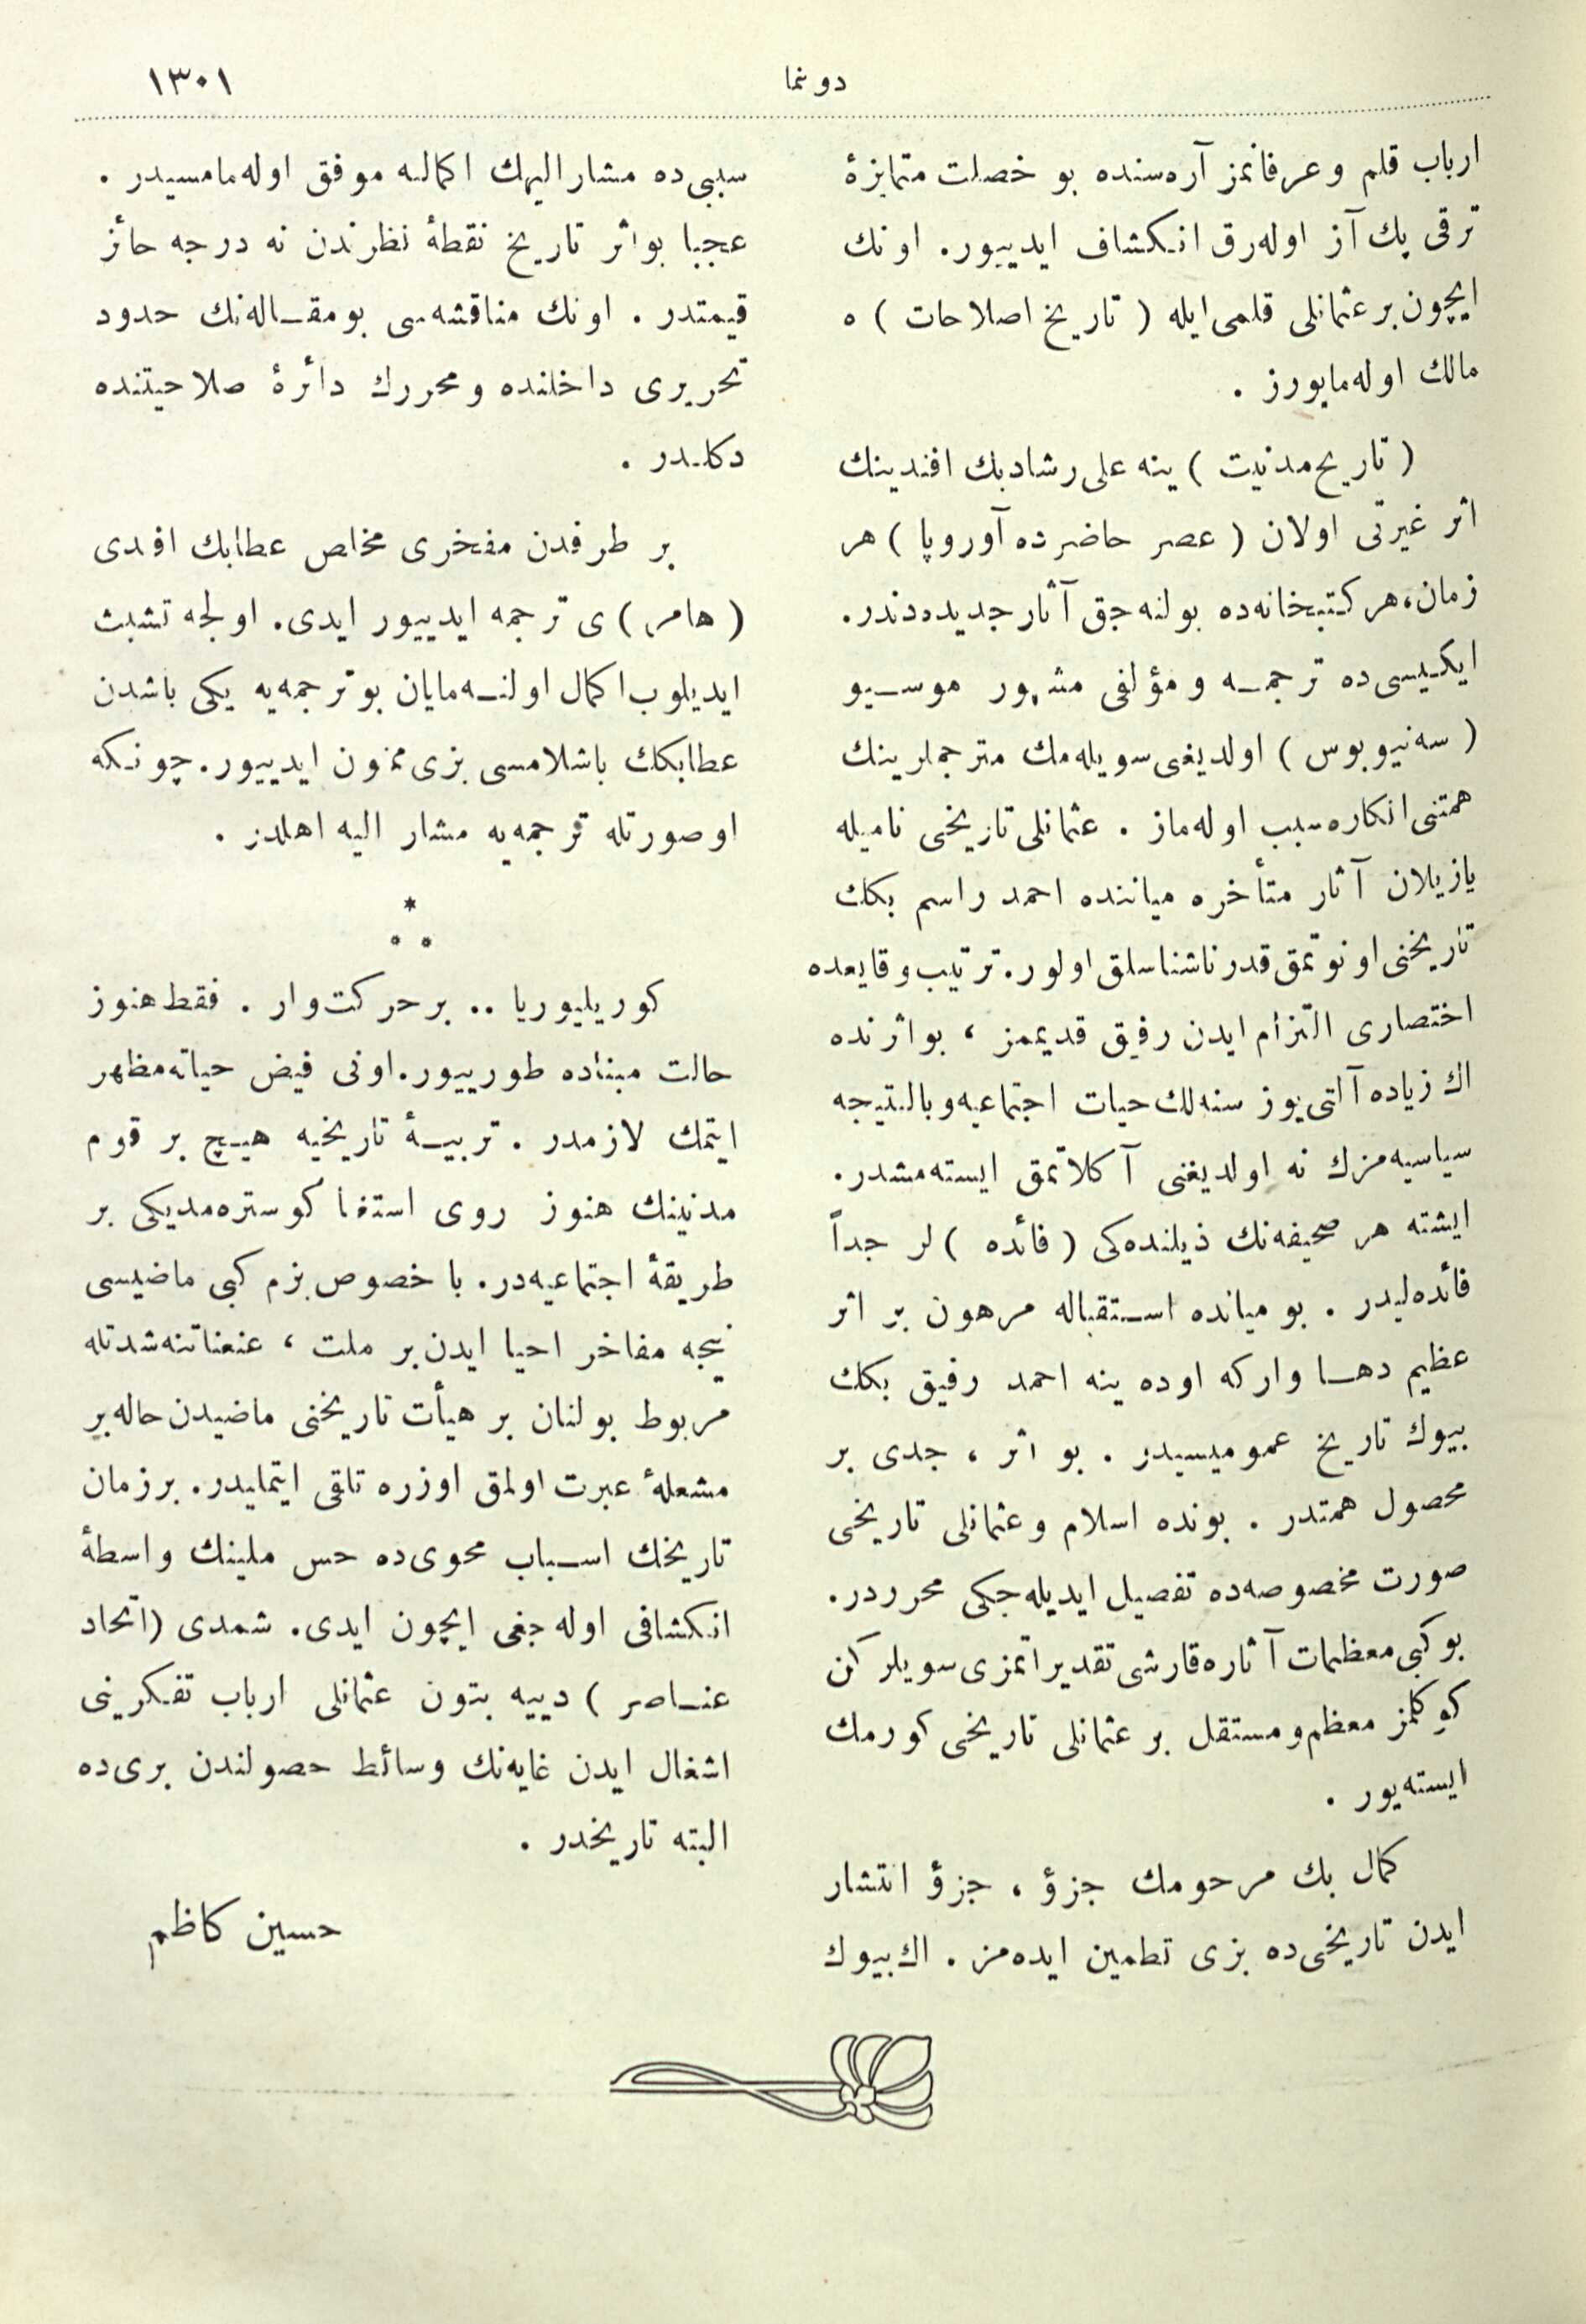 دونما
١٣٠١
ارباب قلم و عرفانمز آره‌سنده بو خصلت متمايزهٔ
ترقى پك آز اوله‌رق انكشاف ايدييور. اونك
ايچون بر عثمانلى قلمى ايله ( تاريخ اصلاحات ) ه
مالك اوله‌مايورز .
( تاريخ مدنيت ) ينه على رشاد بك افندينك
اثر غيرتى اولان ( عصر حاضرده آوروپا ) هر
زمان، هر كتبخانه‌ده بولنه‌جق آثار جديده‌دندر.
ايكيسى‌ده ترجمه و مؤلفى مشهور موسيو
( سه‌نيوبوس ) اولديغى سويله‌مك مترجملرينك
همتنى انكاره سبب اوله‌ماز . عثمانلى تاريخى ناميله
يازيلان آثار متأخره ميانندە احمد راسم بكك
تاريخنى اونوتمق قدر ناشناسلق اولور. ترتيب وقايعده
اختصارى التزام ايدن رفيق قديممز ، بو اثرنده
اك زياده آلتى يوز سنه‌لك حيات اجتماعيه و بالنتيجه
سياسيه‌مزك نه اولديغنى آكلاتمق ايسته‌مشدر.
ايشته هر صحيفه‌نك ذيلنده‌كى ( فائده ) لر جداً
فائده‌ليدر . بو ميانده استقباله مرهون بر اثر
عظيم دها واركه اوده ينه احمد رفيق بكك
بيوك تاريخ عموميسيدر . بو اثر ، جدى بر
محصول همتدر . بونده اسلام و عثمانلى تاريخى
صورت مخصوصه‌ده تفصيل ايديله‌جكى محرردر.
بو كبى معظمات آثاره قارشى تقديراتمزى سويلركن
كوكلمز معظم و مستقل بر عثمانلى تاريخى كورمك
ايسته‌يور .
كمال بك مرحومك جزؤ ، جزؤ انتشار
ايدن تاريخى‌ده بزى تطمين ايده‌مز . اك بيوك
سببى‌ده مشار اليهك اكماله موفق اوله‌مامسيدر .
عجبا بو اثر تاريخ نقطهٔ نظرندن نه درجه حائز
قيمتدر . اونك مناقشه‌سى بو مقاله‌نك حدود
تحريرى داخلنده و محررك دائرهٔ صلاحيتنده
دكلدر .
بر طرفدن مفخرى مخلص عطابك افندى
( هامر ) ى ترجمه ايدييور ايدى. اولجه تشبث
ايديلوب اكمال اولنه‌مايان بو ترجمه‌يه يكى باشدن
عطابكك باشلامسى بزى ممنون ايدييور. چونكه
او صورتله ترجمه‌يه مشار اليه اهلدر .
*
* *
كوريليوريا .. بر حركت وار . فقط هنوز
حالت مبتداده طورييور. اونى فيض حياته مظهر
ايتمك لازمدر . تربيهٔ تاريخيه هيچ بر قوم
مدنينك هنوز روى استغنا كوستره‌مديكى بر
طريقهٔ اجتماعيه‌در. با خصوص بزم كبى ماضيسى
نيجه مفاخر احيا ايدن بر ملت ، عنعناتنه شدتله
مربوط بولنان بر هيأت تاريخنى ماضيدن حاله بر
مشعلهٔ عبرت اولمق اوزره تلقى ايتمليدر. بر زمان
تاريخك اسباب محوى‌ده حس ملينك واسطهٔ
انكشافى اوله‌جغى ايچون ايدى. شمدى (اتحاد
عناصر ) دييه بتون عثمانلى ارباب تفكرينى
اشغال ايدن غايه‌نك وسائط حصولندن برى‌ده
البته تاريخدر .
حسين كاظم